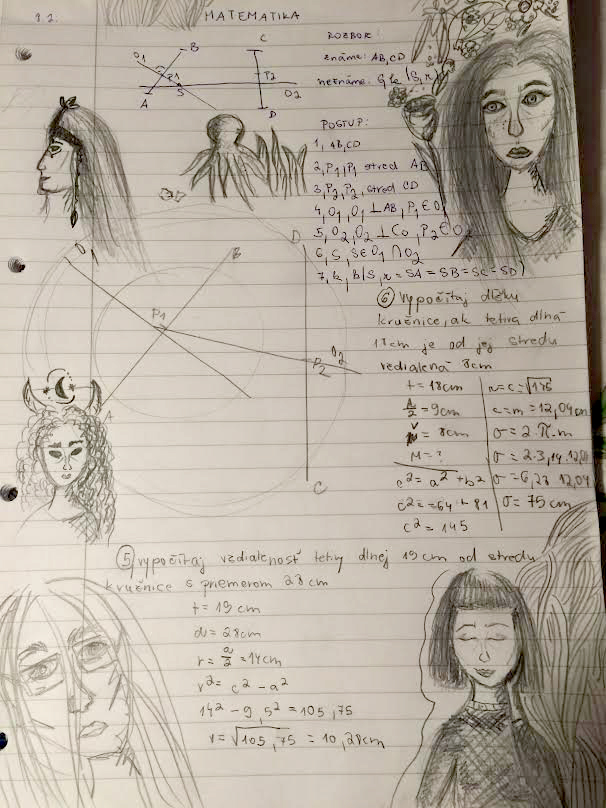 9.2. MATEMATIKA
ROZBOR:
známe: AB, CD
neznáme: S, k (S, r)
O1 B C
S1 P2
A S O2
D
POSTUP:
1, AB, CD
2, P1, P1 stred AB
3, P2, P2, stred CD
4, O1, O1 ⊥ AB, P1 ∈ O1
5, O2, O2 ⊥ CD, P2 ∈ O2
6, S, S ∈ O1 ∩ O2
7, k, k(S, r = SA = SB = SC = SD)
O1 B D
P1
O2
P2
A
C
6 Vypočítaj dĺžku
kružnice, ak tetiva dlhá
18cm je od jej stredu
vzdialená 8cm
t = 18cm
= 9cm
v = 8cm
M = ?
c² = a² + b²
c² = 64 + 81
c² = 145
r = c = √145
c = r = 12,04cm
σ = 2 · π · r
σ = 2 · 3,14 · 12,04
σ = 6,28 · 12,04
σ = 75 cm
5 vypočítaj vzdialenosť tetivy dlhej 19 cm od stredu
kružnice s priemerom 28 cm
t = 19 cm
d = 28cm
r = d/2 = 14cm
v² = c² - a²
14² - 9,5² = 105,75
v = √105,75 = 10,28cm